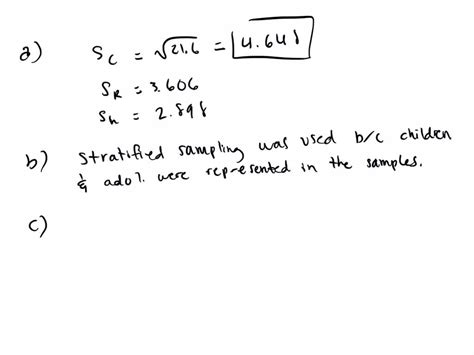 a) S_C = √21.6 = 4.648
S_R = 3.606
S_h = 2.898
b) Stratified sampling was used b/c children
& adol. were represented in the samples.
c)